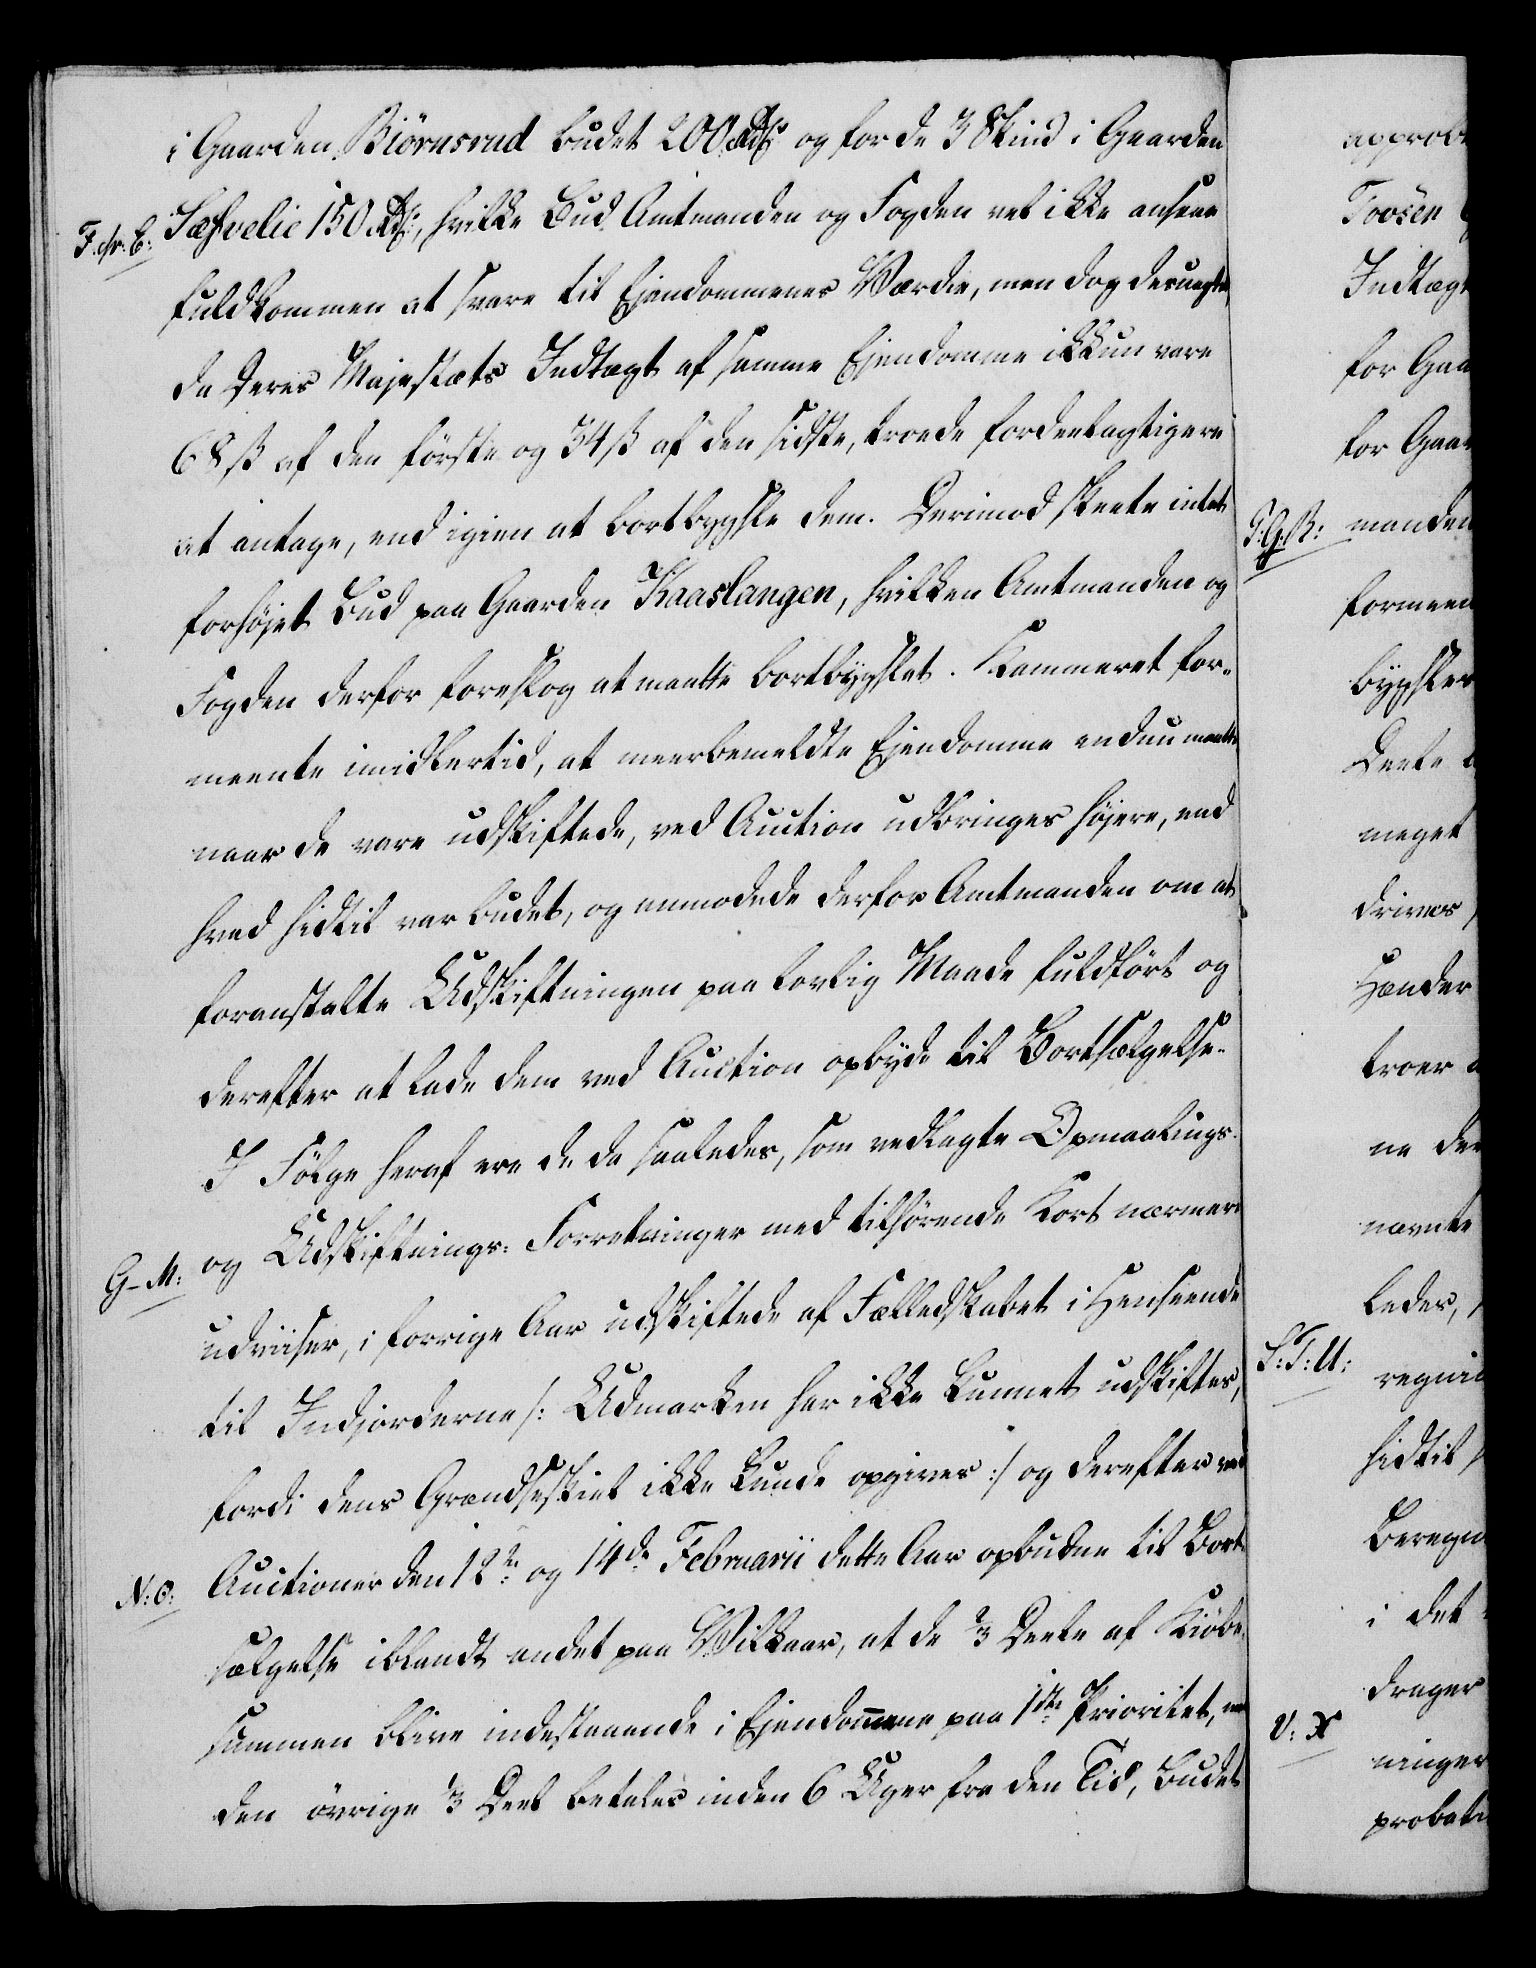 i Gaarden Biörnsrud budet 200 Rdlr og for de 3 Skind i Gaarden
F. dr. E: Sæsvelie 150 Rdlr, hvilke Bud Amtmanden og Fogden vel ikke ansaae
fuldkommen at svare til Ejendommenes Værdie, men dog desuagtet,
da Deres Majestæts Indtægt af samme Ejendomme ikkun vare
68 ß af den förste og 34 ß af den sidste, troede fordeelagtigere
at antage, end igien at bortbygsle dem. Derimod skeete intet
forhöjet Bud paa Gaarden Kaaslangen, hvilken Amtmanden og
Fogden derfor foreslog at maatte bortbygslet. Kammeret for-
meente imidlertid, at meerbemeldte Ejendomme enduu maatte
naar de vare udskiftede, ved Auction udbringes höjere, end
hvad hidtil var budet, og anmodede derfor Amtmanden om at
foranstalte Udskiftningen paa lovlig Maade fuldfört og
derefter at lade dem ved Auction opbyde til Bortsælgelse.
I Fölge heraf ere de da saaledes, som vedlagte Opmaalings-
G-M: og Udskiftnings- Forretninger med tilhörende Kort nærmere
udviiser, i forrige Aar udskiftede af Fælledskabet i Henseende
til Indjorderne /: Udmarken har ikke kunnet udskiftes,
fordi dens Grændseskiel ikke kunde opgives :/ og derefter ved
N: O: Auctioner den 12te og 14de Februarii dette Aar opbudne til Bort-
sælgelse iblandt andet paa Vilkaar, at de 2/3 Deele af Kiöbe-
summen blive indestaaende i Ejendommene paa 1ste Prioritet, men
den övrige 1/3 Deel betales inden 6 Uger fra den Tid, Budet
Toosen
Indtægt
for Gaa
for Gaar
manden
formeen
bygsler
Deele
meget
drives
Hænder
troer
ne der
nævnte
leder,
S: T: U:
hidtil
Beregn
i det
drager
V: X
ninger
probati